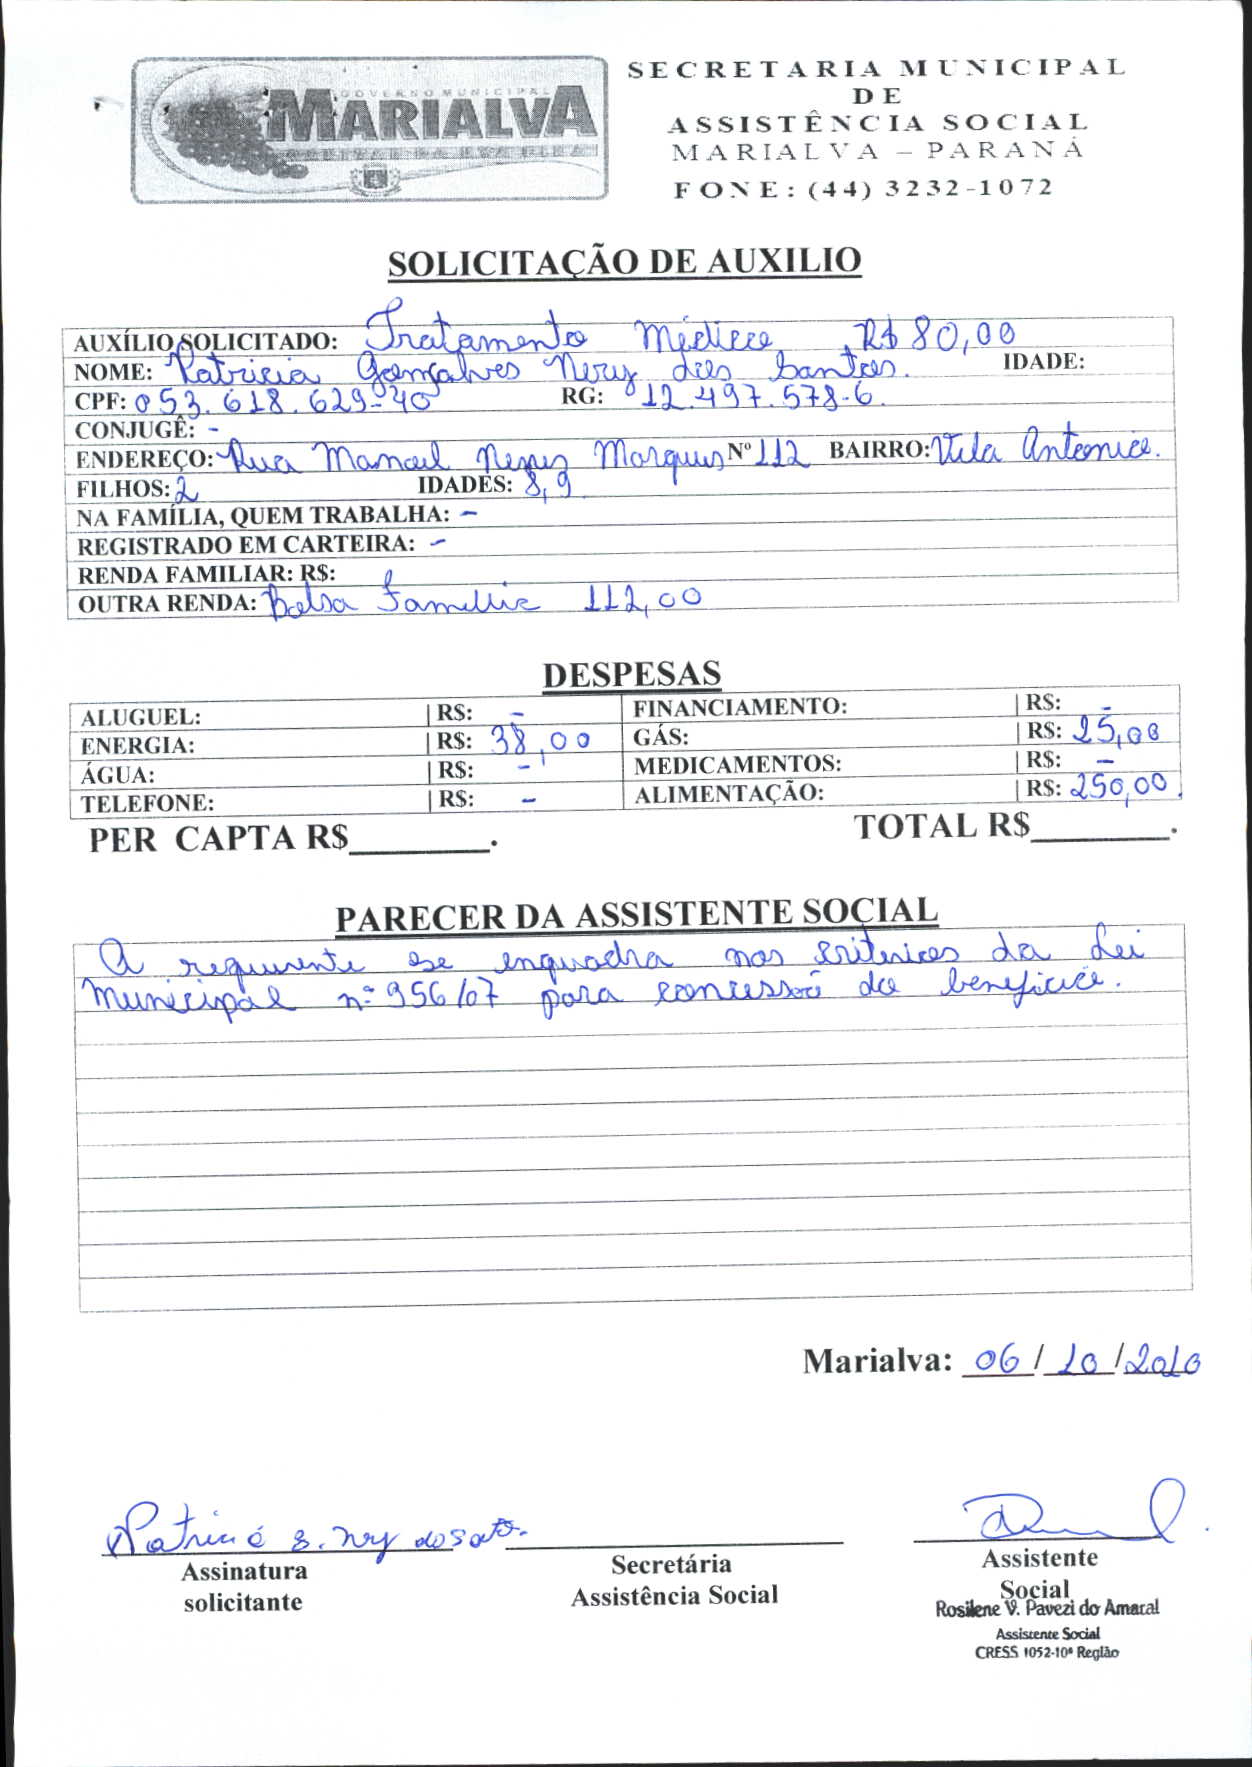 GOVERNO MUNICIPAL
MARIALVA
SECRETARIA MUNICIPAL
DE
ASSISTÊNCIA SOCIAL
MARIALVA – PARANÁ
FONE: (44) 3232-1072
SOLICITAÇÃO DE AUXILIO
AUXÍLIO SOLICITADO: Tratamento Médico R$ 80,00
NOME: Patricia Gonçalves Nery dos Santos. IDADE:
CPF: 053.618.629-40 RG: 12.497.578-6.
CONJUGÊ: -
ENDEREÇO: Rua Manoel Marques Nº 112 BAIRRO: Vila Antonio.
FILHOS: 2 IDADES: 8, 9
NA FAMÍLIA, QUEM TRABALHA: -
REGISTRADO EM CARTEIRA: -
RENDA FAMILIAR: R$:
OUTRA RENDA: Bolsa Familia 112,00
DESPESAS
ALUGUEL: | R$: - FINANCIAMENTO: | R$: -
ENERGIA: | R$: 38,00 GÁS: | R$: 25,00
ÁGUA: | R$: - MEDICAMENTOS: | R$: -
TELEFONE: | R$: - ALIMENTAÇÃO: | R$: 250,00.
PER CAPTA R$________. TOTAL R$________.
PARECER DA ASSISTENTE SOCIAL
A requerente se enquadra nos criterios da Lei
Municipal nº 956/07 para concessão do beneficio.
Marialva: 06/10/2010
Patricia G. Nery do
Assinatura
solicitante
Secretária
Assistência Social
Assistente
Social
Rosilene V. Pavezi do Amaral
Assistente Social
CRESS 1052-10ª Região